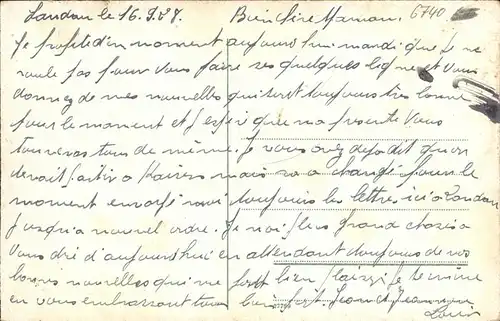 Landau le 16.9.27. Bien chère Maman. 6740
Je profite d'un moment aujourd'hui mardi que je ne
roule pas pour vous faire ses quelques ligne et vous
donnez de mes nouvelles qui sont toujours très bonne
pour le moment et j'espère que ma présente vous
touveras tous de même. Je vous avez deja dit qu'on
devait partir a Kaisers mais sa a changé pour le
moment envoyé moi toujours les lettre, ici a Landau
jusqu'a nouvel ordre. Je n'ai plus grand chose a
vous dire d'aujourd'hui en attendant toujours de vos
bonnes nouvelles qui me font bien plaisir je termine
en vous embrassant tous bien fort.
Louis